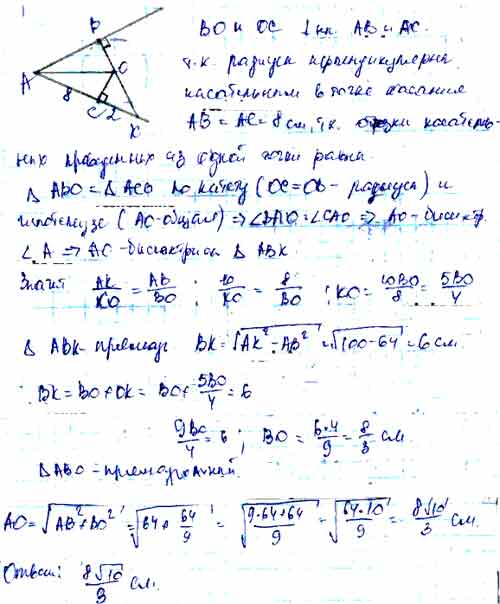 B
A
O
8
C 2
K
BO и OC ⊥ кп. AB и AC.
т.к. радиусы перпендикулярны
касательным в точке касания
AB = AC = 8 см, т.к. отрезки касатель-
ных проведенных из одной точки равны.
Δ ABO = Δ ACO по катету (OC=OB - радиусы) и
гипотенузе (AO-общая) ⇒ ∠BAO=∠CAO ⇒ AO-бисектр.
∠ A ⇒ AO - биссектриса Δ ABK.
Значит AK/KO = AB/BO ; 10/KO = 8/BO ; KO = 10BO/8 = 5BO/4
Δ ABK - прямоуг. BK = √(AK² - AB²) = √(100-64) = 6 см.
BK = BO + OK = BO + 5BO/4 = 6
9BO/4 = 6 ; BO = 6·4/9 = 8/3 см.
Δ ABO - прямоугольный.
AO = √(AB² + BO²) = √(64 + 64/9) = √((9·64+64)/9) = √(64·10/9) = 8√10/3 см.
Ответ: 8√10/3 см.